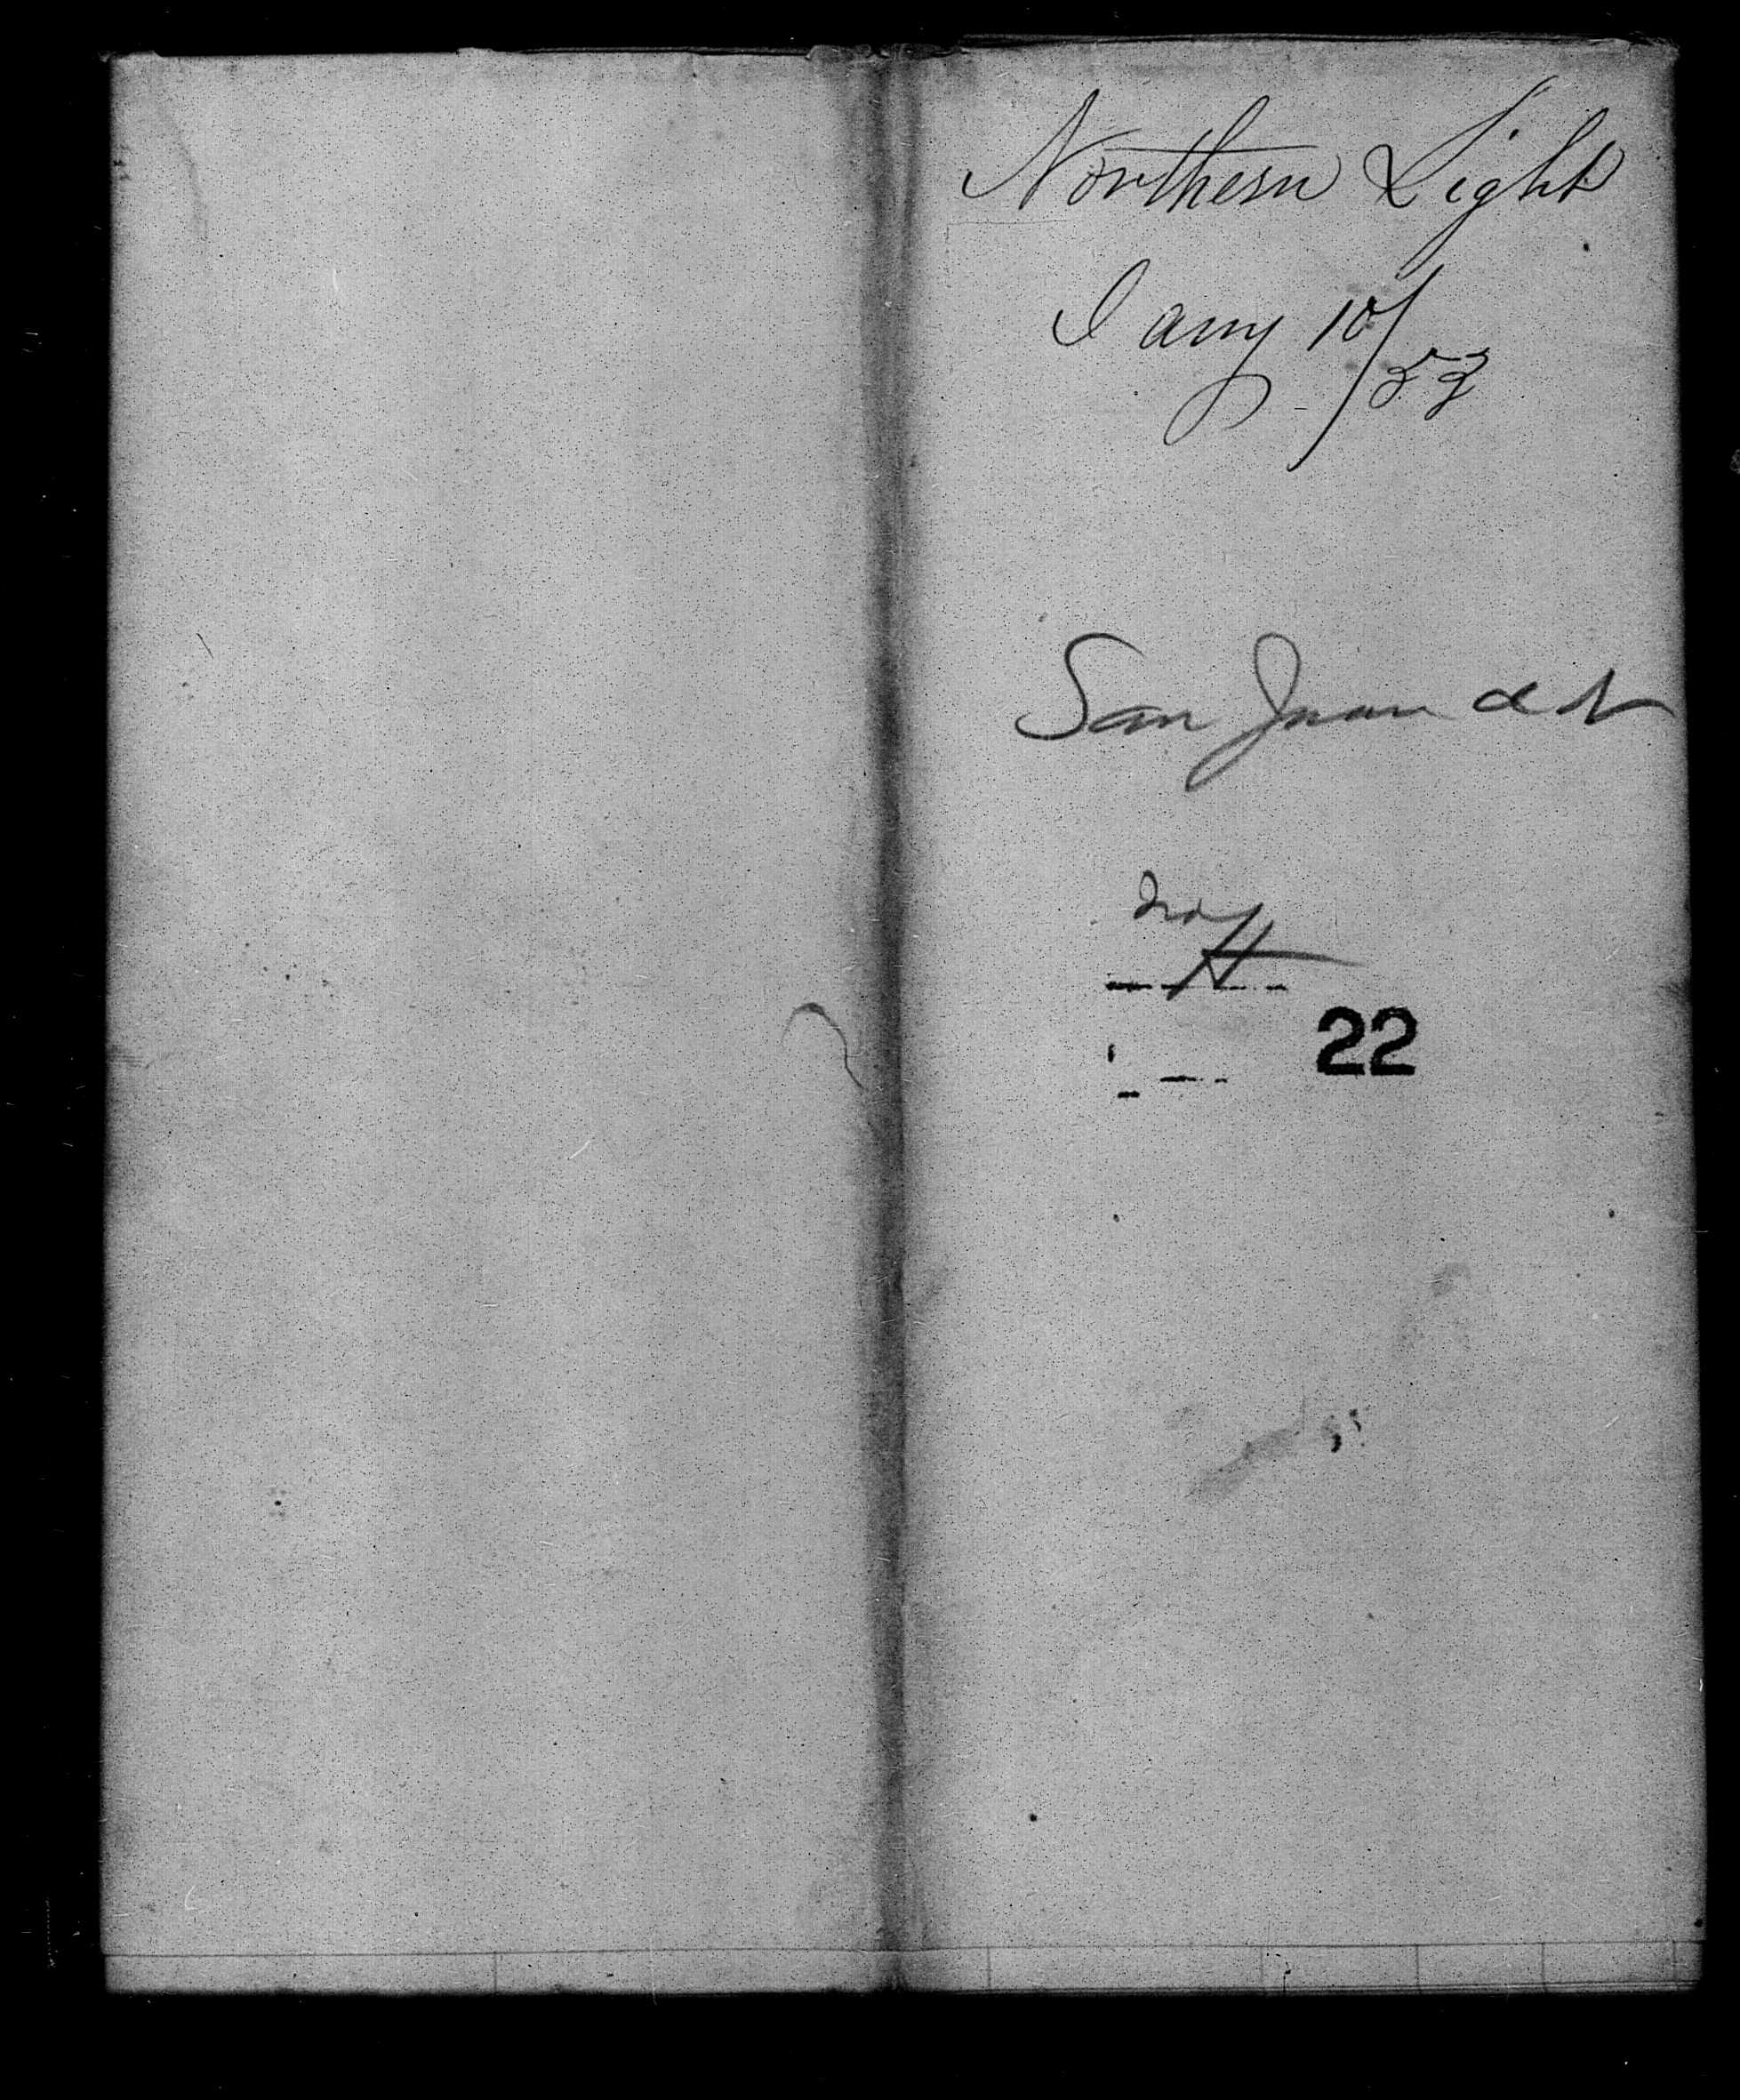 Northern Light
Jany 10/53
San Juan d N
22